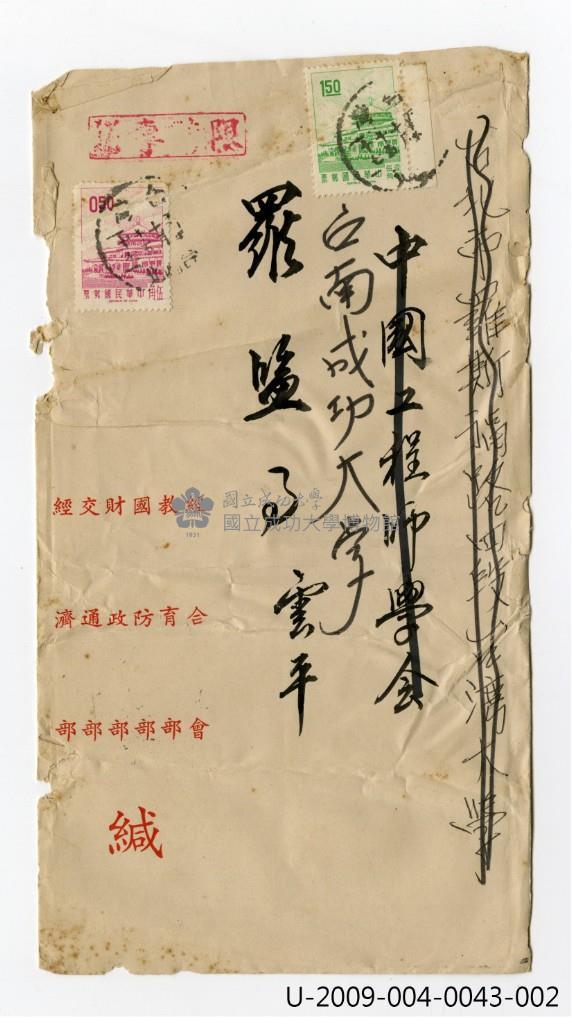 台北市羅斯福路四段台灣大學
中國工程師學会
台南成功大学
羅監事雲平
限時專送
150
中華民國郵票
050
伍角
中華民國郵票
經合會
教育部
國防部
財政部
交通部
經濟部
緘
國立成功大學
國立成功大學博物館
1931
U-2009-004-0043-002